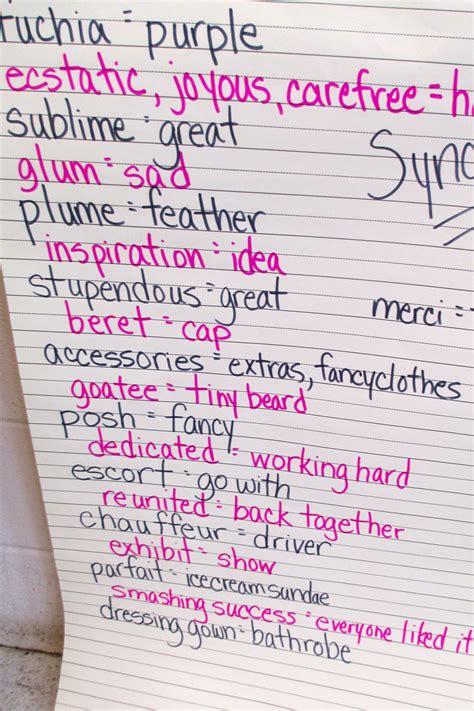 fuchia = purple
ecstatic, joyous, carefree = h
sublime = great
Syno
glum = sad
plume = feather
inspiration = idea
stupendous = great
merci =
beret = cap
accessories = extras, fancyclothes
goatee = tiny beard
posh = fancy
dedicated = working hard
escort = go with
reunited = back together
chauffeur = driver
exhibit = show
parfait = icecream sundae
smashing success = everyone liked it
dressing gown = bathrobe